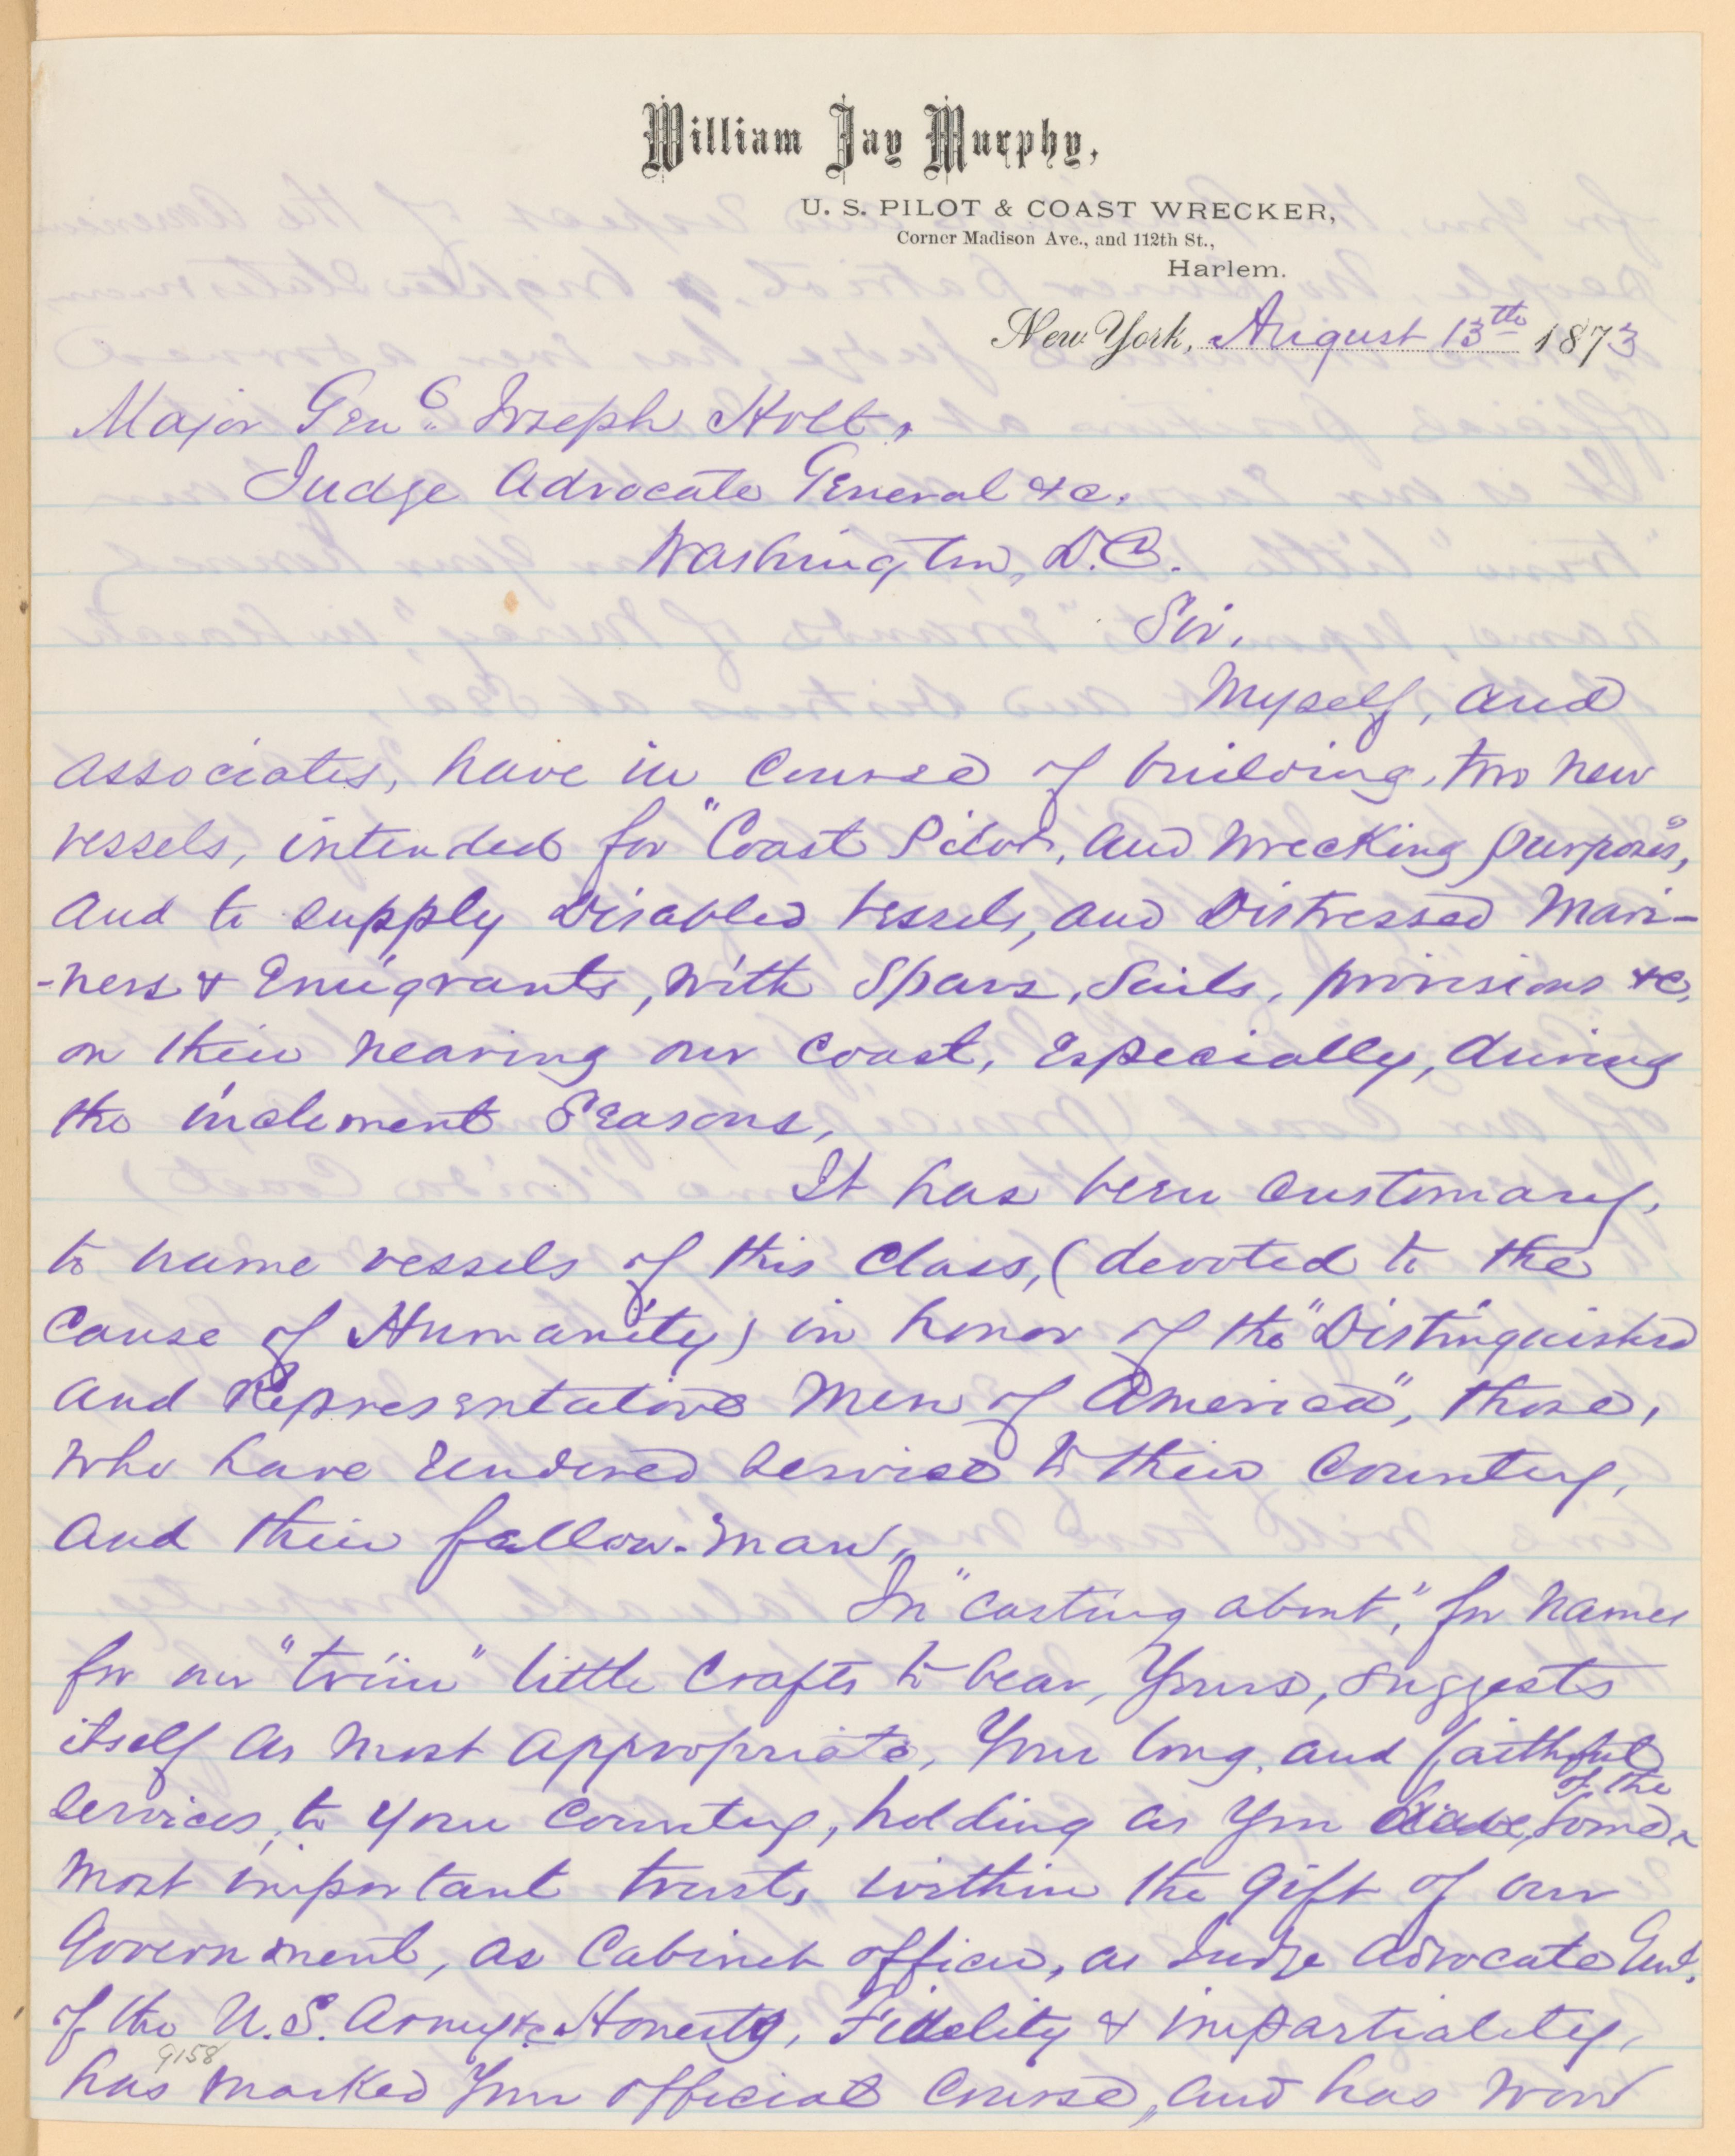 William Jay Murphy,
U. S. PILOT & COAST WRECKER,
Corner Madison Ave., and 112th St.,
Harlem.
New York, August 13th 1873
Major Genl. Joseph Holt,
Judge Advocate General &c.
Washington, D.C.
Sir,
Myself, and
associates, have in course of building, two new
vessels, intended for "Coast Pilot, and Wrecking purposes",
and to supply Disabled Vessels, and Distressed Mari-
-ners & Emigrants, with Spars, Sails, provisions &c,
on their nearing our coast, Especially, during
the inclement Seasons,
It has been customary,
to name vessels of this class, (devoted to the
Cause of Humanity) in honor of the "Distinguished
and Representative Men of America", those,
who have rendered service to their Country,
and their fellow-man,
In "casting about", for names
for our "trim" little Crafts to bear, Yours, suggests
itself as most appropriate, Your long, and faithful
services, to your country, holding as you have, some of the
most important trusts, within the gift of our
Government, as Cabinet officer, as Judge Advocate Genl.
of the U.S. Army &c. Honesty, Fidelity & impartiality,
has marked your official course, and has won
9158